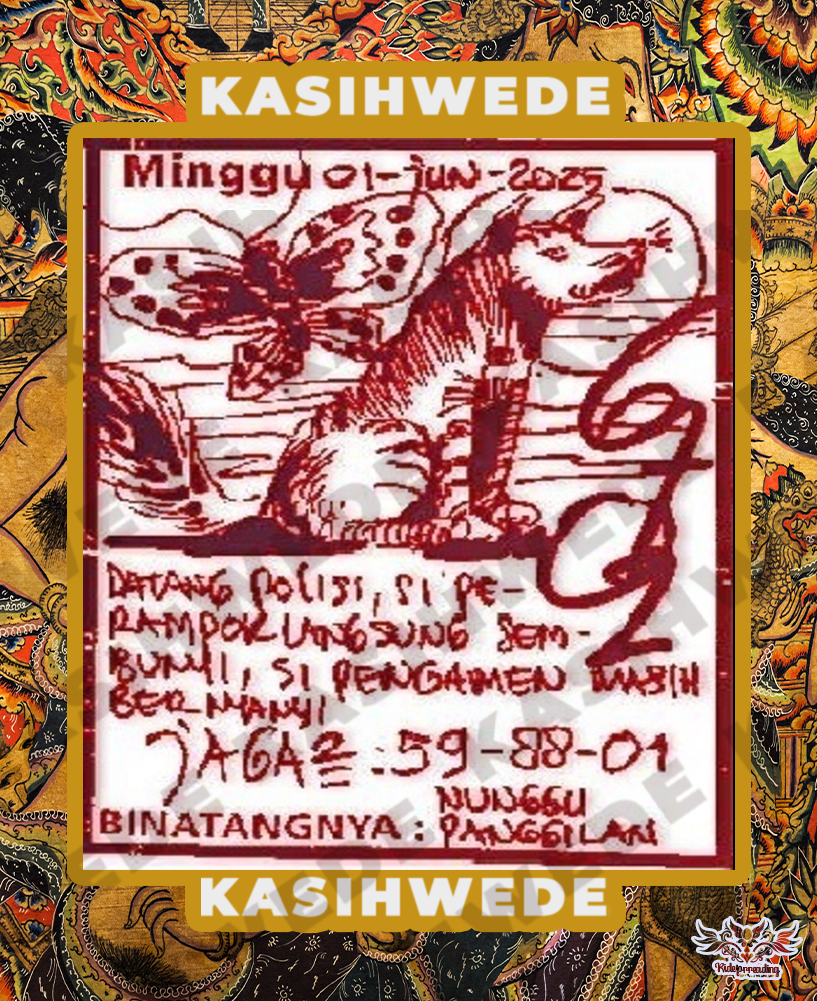 KASIHWEDE
Minggu 01-JUN-2025
DATANG POLISI, SI PE-
RAMPOK LANGSUNG SEM-
BUNYI, SI PENGAMEN MASIH
BERNYANYI
JAGA2 : 59-88-01
NUNGGU
BINATANGNYA : PANGGILAN
KASIHWEDE